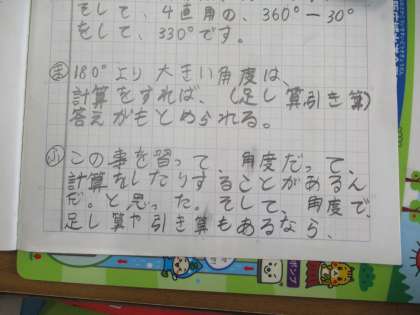 そして、4直角の、360°－30°
をして、330°です。
ま 180°より大きい角度は、
計算をすれば、(足し算引き算)
答えがもとめられる。
ふ この事を習って、角度だって、
計算をしたりすることがあるん
だ。と思った。そして、角度で、
足し算や引き算もあるなら、